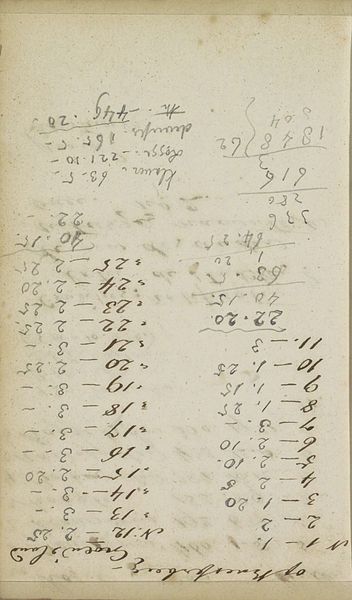 N 1 — 1.
2 — 2
3 — 1. 20
4 — 2. 5
5 — 2. 10
6 — 2. 10
7 — 3. -
8 — 1. 25
9 — 1. 15
10 — 1. 25
11 — 3
22.20
40.15
63.5
64.25
336
280
616
1848 62
N: 12 — 2.25
" 13 — 3. -
" 14 — 3. -
" 15 — 2. 20
" 16 — 3. -
" 17 — 3. -
" 18 — 3. -
" 19 — 3. -
" 20 — 2. 25
" 21 — 3. -
" 22 — 2. 25
" 23 — 2. 25
" 24 — 2. 20
" 25 — 2. 25
40. 15
22. -
Klaver . 63. 5 -
Rogge - 221. 10 -
165. 5
449. 20